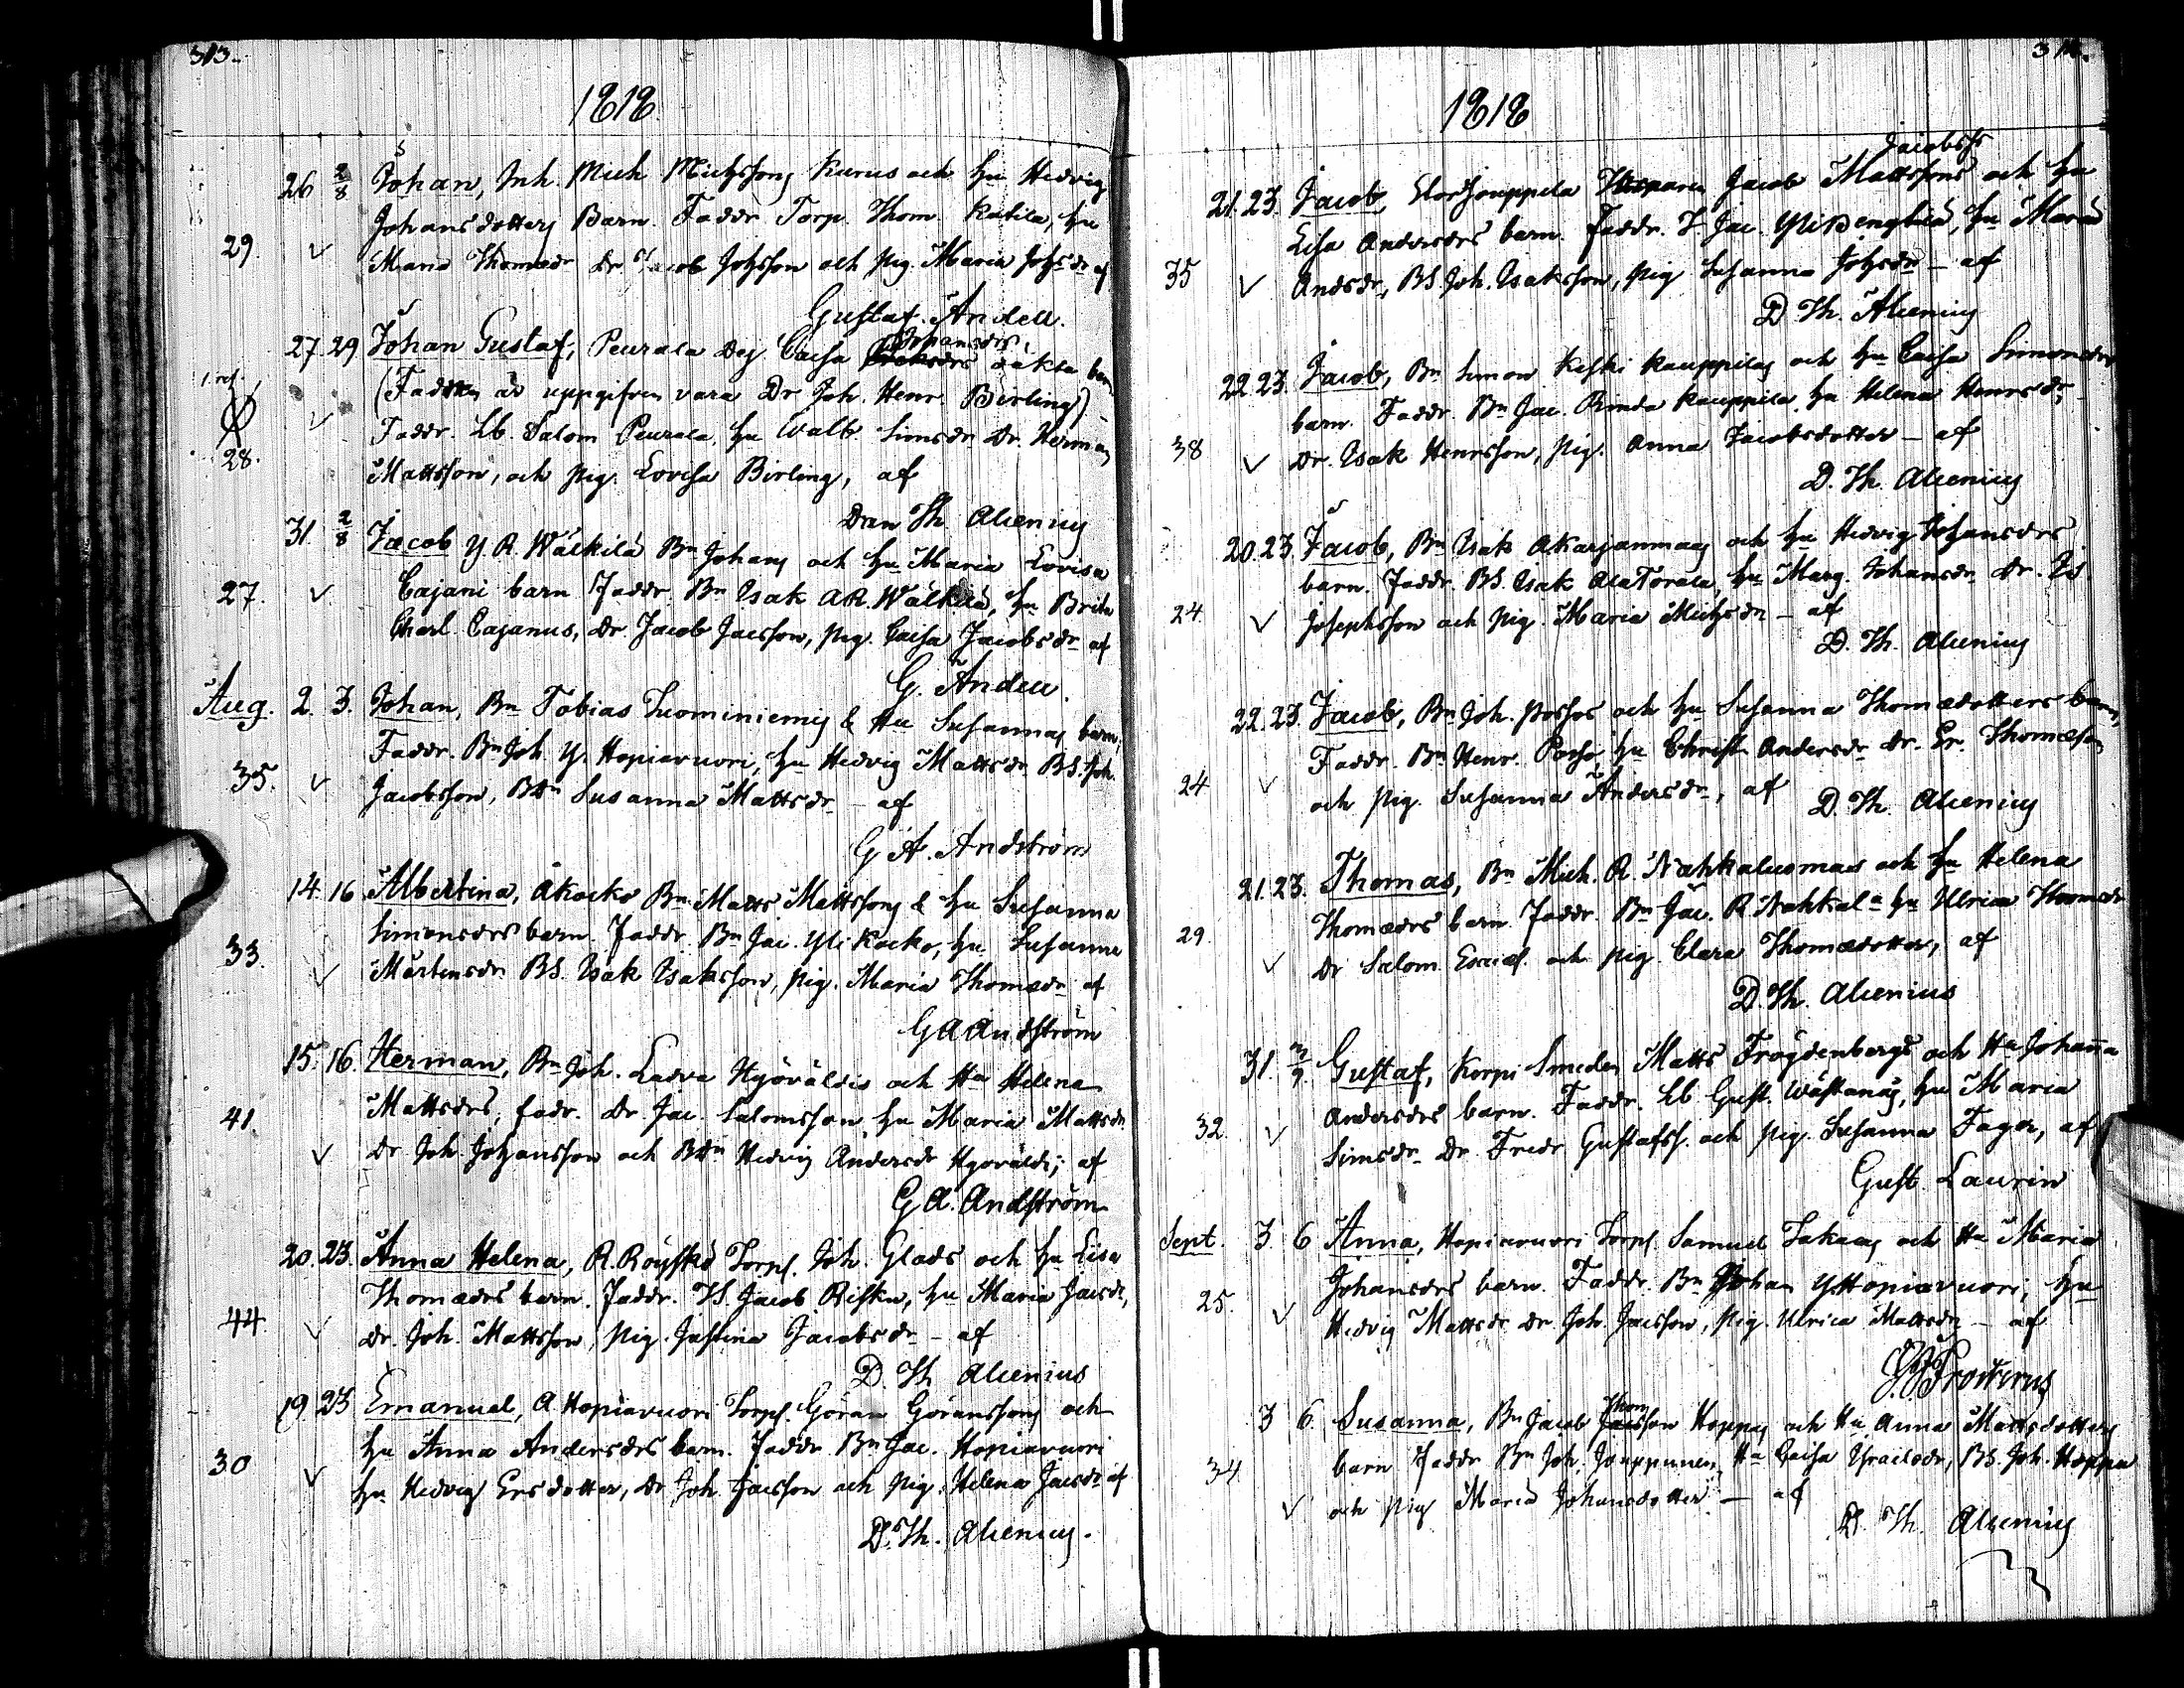 313.
1818
26 2/8 Johan, Inh. Mich Michssons Kurus och hu Hedvig
Johansdotters Barn. Faddr. Torp. Thom. Katila, hu
29. Maria Thomædr Dr Jacob Johsson och pig. Maria Johsdr af
Gustaf Andell.
27. 29 Johan Gustaf, Peurala Dej Caisa Johansdrs oäkta barn
(Fadren är uppgifven vara Dr Joh. Henr. Birling)
Faddr. Lb. Salom Peurala, hu Walb. Simsdr Dr. Herman
28. Mattsson, och pig. Lovisa Birling, af
Dan Th Alcenius
31. 2/8 Jacob Y R Wälkilä Bn Johans och hu Maria Lovisa
27. Cajani barn Faddr. Bn Isak A R. Wälkilä, hu Brita
Charl. Cajanus, Dr. Jacob Jacsson, pig. Caisa Jacobsdr af
G. Andell.
Aug. 2. 3. Johan, Bn Tobias Tuominiemis & Hu Susannas barn,
Faddr. Bn Joh Y. Hopiavuori, hu Hedvig Mattsdr BS. Joh.
35. Jacobsson, BDr Susanna Mattsdr – af
G A. Andström
14. 16 Albertina, Akocko Bn Matts Mattssons & hu Susanna
Simonsdrs barn. Faddr. Bn Jac. Yli Kocko, hu Susanna
33. Mårtensdr BS. Isak Isaksson, pig. Maria Thomædr af
G A Andström
15. 16. Herman, Bn Joh. Ladva Hyöväldis och Hu Helena
Mattsdrs, fadr. Dr Jac. Salomsson hu Maria Mattsdr
41. Dr Joh. Johansson och BDr Hedvig Andersdr Hyöväldi; af
G A. Andström
20. 23. Anna Helena, R. Röyskö Torpf. Joh. Glads och hu Lisa
Thomædrs barn. Faddr. TS. Jacob Risku, hu Maria Jacsdr,
44. Dr. Joh. Mattsson, pig. Justina Jacobsdr – af
D. Th Alcenius
19 23 Emanuel, A Hopiavuori Torpf. Göran Göranssons och
hu Anna Andersdrs barn. Faddr. Bn Jac. Hopiavuori
30 hu Hedvig Ersdotter, Dr Joh. Jacsson och pig. Helena Jacsdr af
D. Th. Alcenius.
314.
1818
Jacobss
21. 23. Jacob, Storjouppila Jacob Mattssons och hu
Lisa Andersdrs barn. Faddr. Jac. hu Maria
35 Andsdr, BS Joh. Isaksson, pig Susanna Johsdr – af
D Th. Alcenius
22. 23. Jacob, Bn Simon Keski Kauppilas och hu Caisa Simonsdrs
barn. Faddr. Bn Jac. Kauppila, hu Helena Henrsdr,
38 Dr. Isak Henrsson, pig. Anna Jacobsdotter – af
D. Th. Alcenius
20. 23. Jacob, Bn Isak Akarjanmaas och hu Hedvig Johansdrs
barn. Faddr. BS. Isak AlaTorala, hu Marg. Johansdr Dr. Is
24. Josephsson och pig. Maria Michsdr – af
D. Th. Alcenius
22. 23. Jacob, Bn Joh. Possos och hu Susanna Thomædotters barn,
Faddr. Bn Henr. Posso, hu Christ. Andersdr Dr. Er. Thomæson
24 och pig. Susanna Andersdr, af D. Th. Alcenius
21. 23. Thomas, Bn Mich. R. Nahkaluomas och hu Helena
Thomædrs barn. Faddr. Bn Jac. R Nahkala hu Ulrica Thomædr
29. Dr Salom. Esaiæs. och pig. Clara Thomædotter, af
D. Th. Alcenius
31. Gustaf, Korpi Smeden Matts Frögdenbergs och Hu Johanna
Andersdrs barn. Faddr. Lb Gust. Wästanås, hu Maria
32. Simsdr Dr. Fredr Gustafss. och pig. Susanna Fager, af
Gust. Laurin
Sept. 3. 6 Anna, Hopiavuori Torpf. Samuel och Hu Maria
Johansdrs barn. Faddr. Bn Johan Y Hopiavuori, hu
25. Hedvig Mattsdr Dr. Joh. Jacsson, pig. Ulrica Mattsdr – af
Frosterus
3 6. Susanna, Bn Jacob Thomsson Hoppas och Hu Anna Mattsdotters
34. barn Faddr Bn Joh. Jouppinen, Hu Caisa Israelsdr, BS. Joh. Hoppa
och pig Maria Johansdotter – af
D. Th. Alcenius